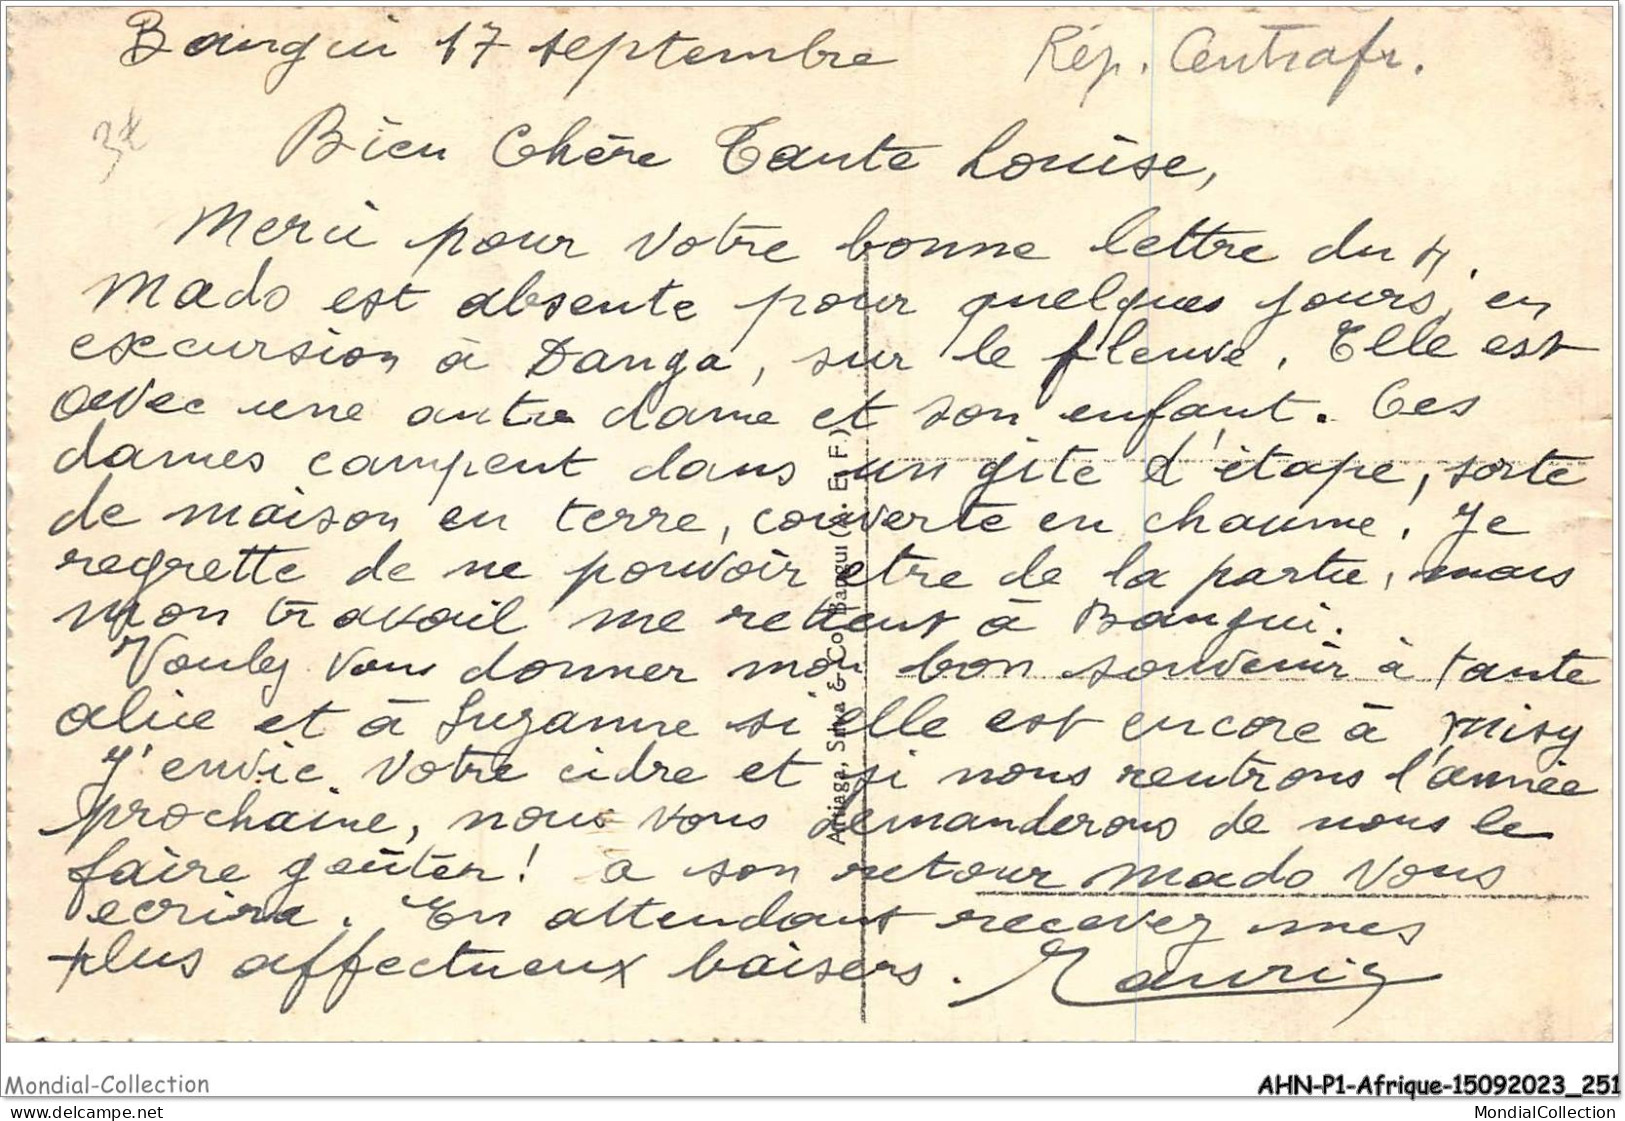 Bangui 17 septembre Rép. Centrafr.
Bien Chère Tante Louise,
Merci pour votre bonne lettre du 4.
Mado est absente pour quelques jours, en
excursion à Danga, sur le fleuve. Elle est
avec une autre dame et son enfant. Ces
dames campent dans un gite d'étape, sorte
de maison en terre, couverte en chaume. Je
regrette de ne pouvoir etre de la partie, mais
mon travail me retient à Bangui.
Voulez vous donner mon bon souvenir à tante
alice et à Suzanne si elle est encore à Misy
J'envie votre cidre et si nous rentrons l'année
prochaine, nous vous demanderons de nous le
faire goûter! a son retour Mado vous
ecrira. En attendant recevez mes
plus affectueux baisers.
Arriaga, Silva & Co. Bangui (A. E. F.)
Mondial-Collection
AHN-P1-Afrique-15092023_251
www.delcampe.net
MondialCollection